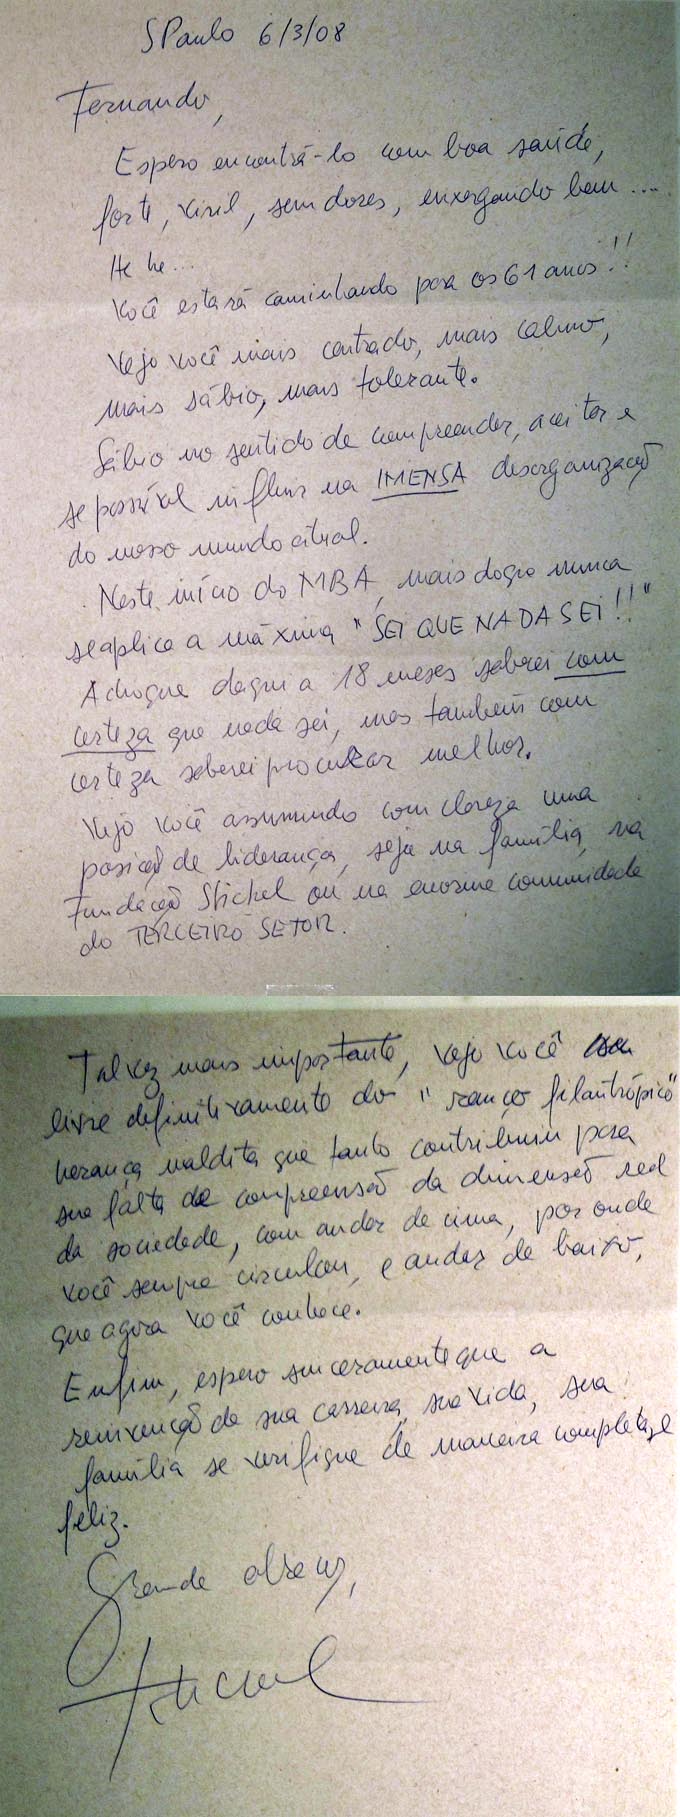 SPaulo 6/3/08
Fernando,
Espero encontrá-lo com boa saúde,
forte, viril, sem dores, enxergando bem ....
He he...
Você estará caminhando para os 61 anos!!
Vejo você mais centrado, mais calmo,
mais sábio, mais tolerante.
Sábio no sentido de compreender, aceitar e
se possível influir na IMENSA desorganização
do nosso mundo atual.
Neste início do MBA, mais do que nunca
se aplica a máxima "SEI QUE NADA SEI!!"
Acho que daqui a 18 meses saberei com
certeza que nada sei, mas também com
certeza saberei procurar melhor.
Vejo você assumindo com clareza uma
posição de liderança, seja na família, na
Fundação Stickel ou na enorme comunidade
do TERCEIRO SETOR.
Talvez mais importante, vejo você
livre definitivamente do "ranço filantrópico"
herança maldita que tanto contribuiu para
sua falta de compreensão da dimensão real
da sociedade, com andar de cima, por onde
você sempre circulou, e andar de baixo,
que agora você conhece.
Enfim, espero sinceramente que a
reinvenção de sua carreira, sua vida, sua
família se verifique de maneira completa e
feliz.
Grande abraço,